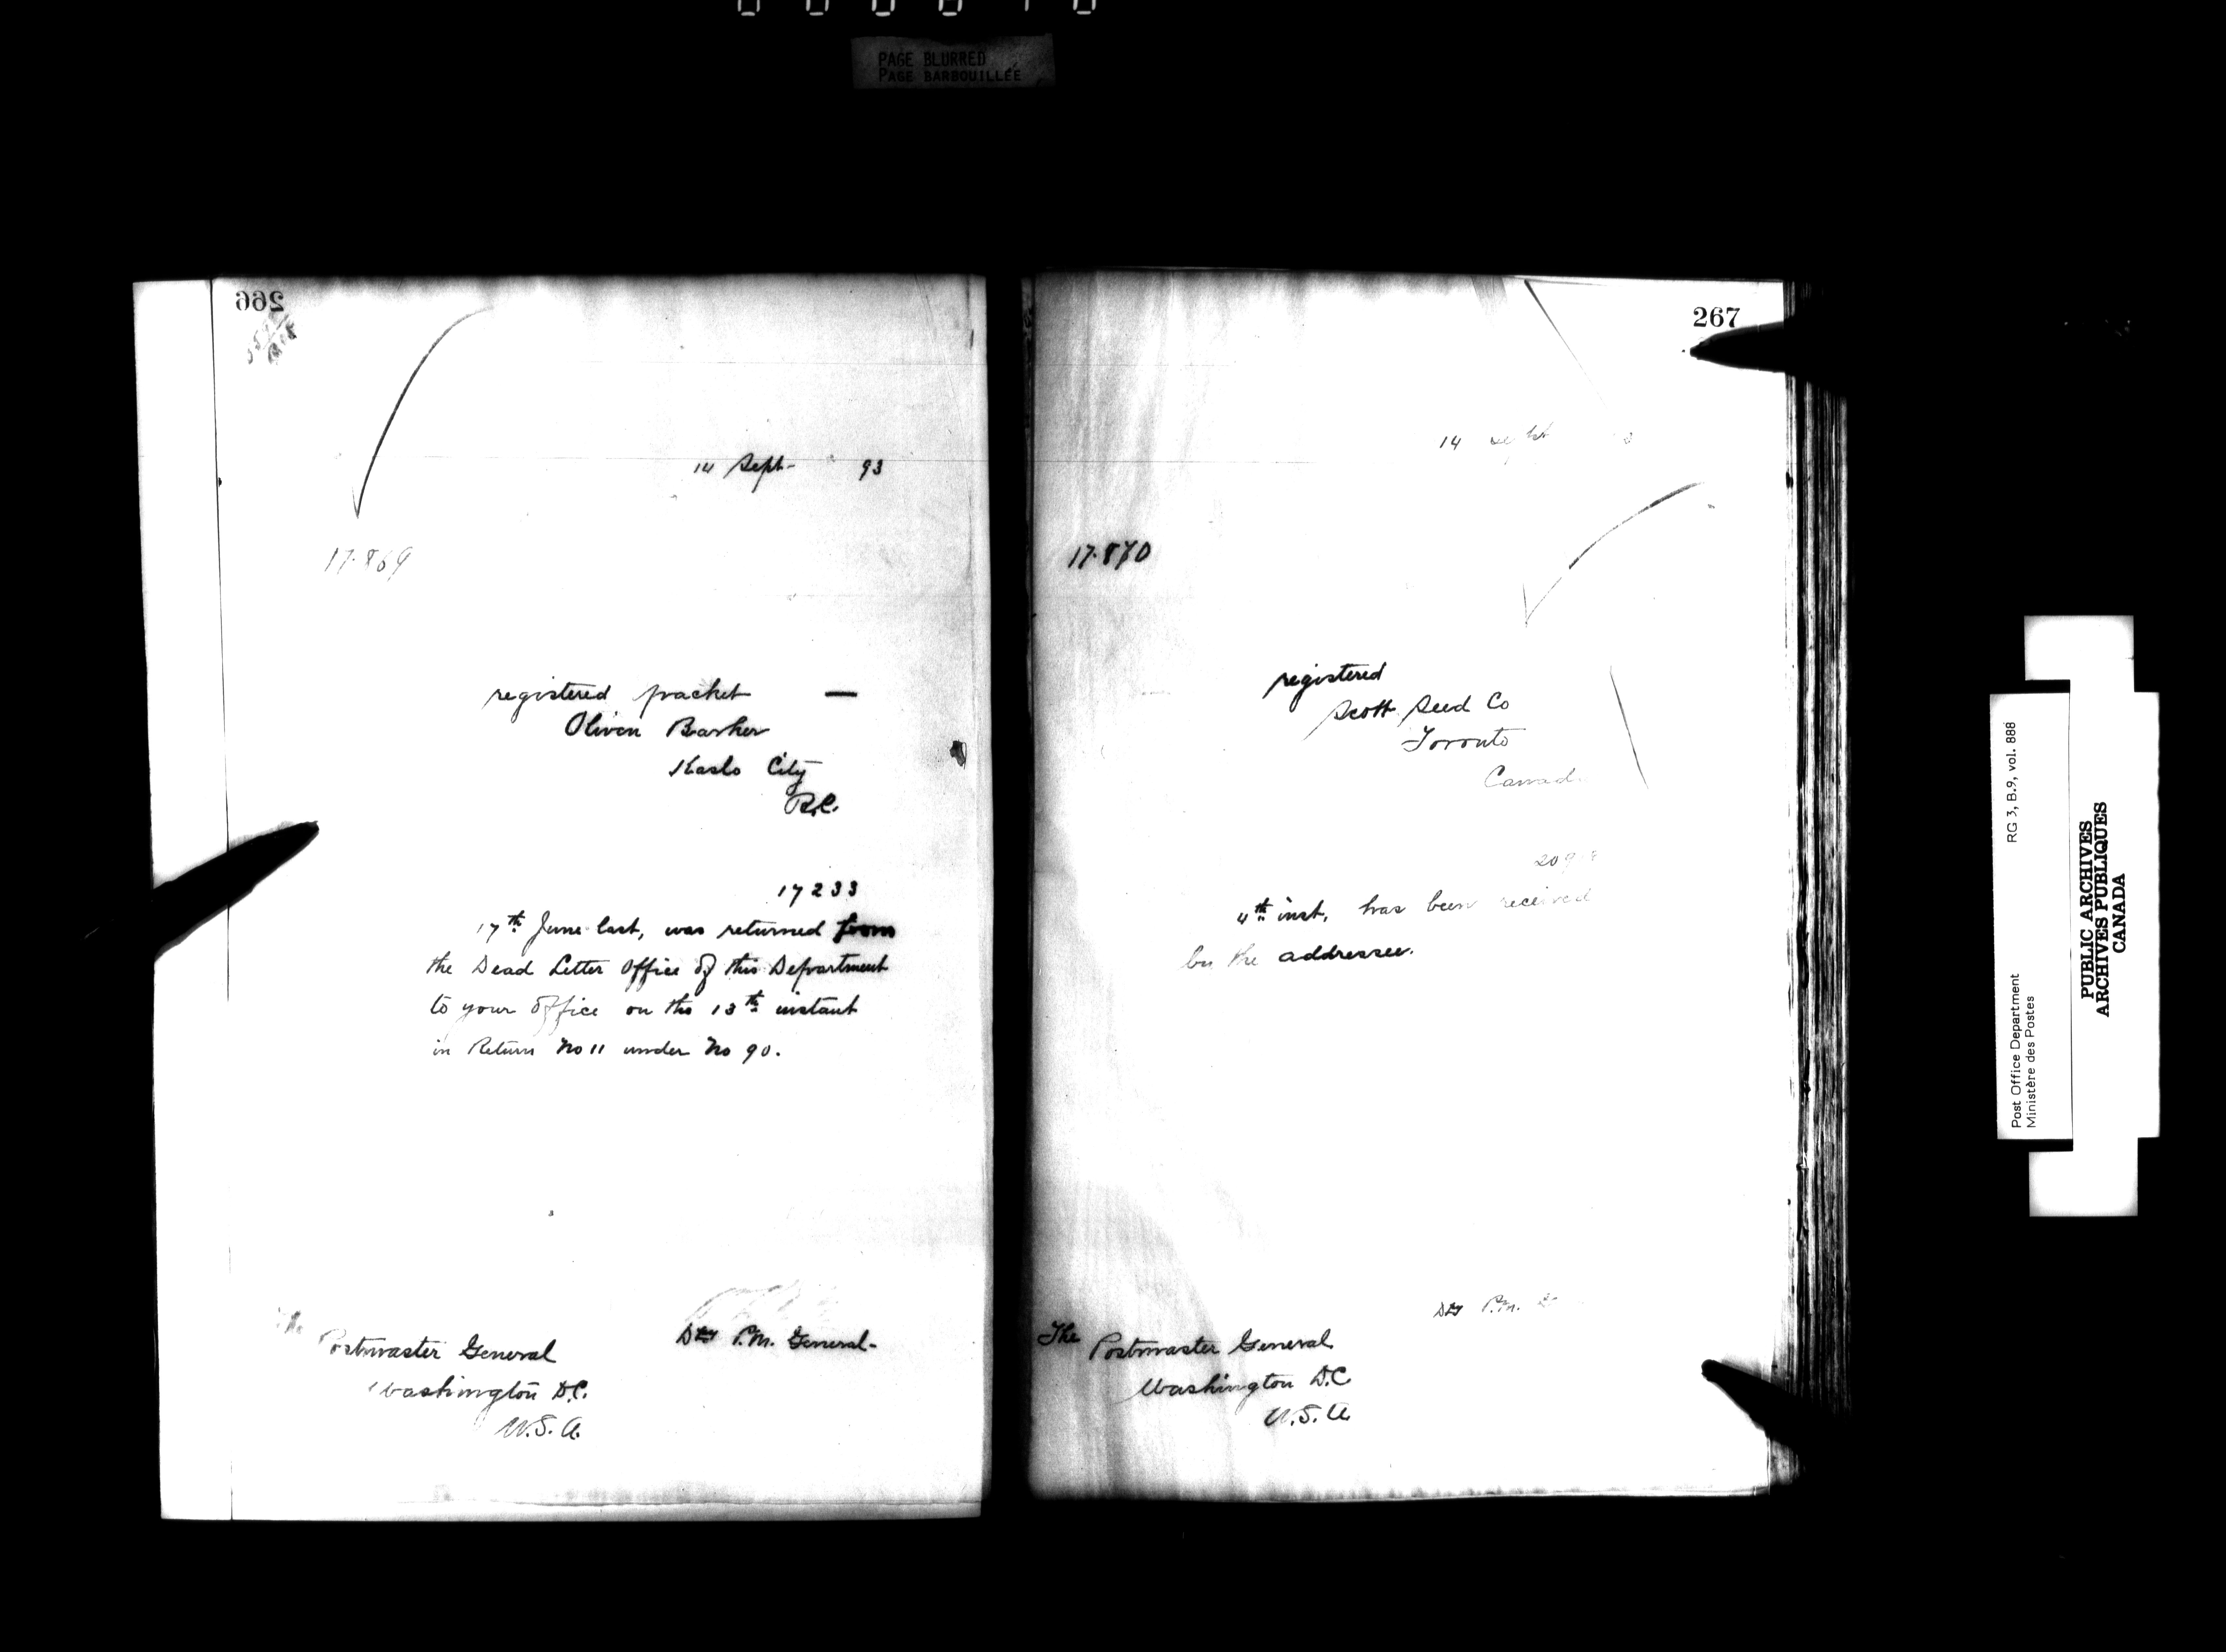 PAGE BLURRED
PAGE BARBOUILLÉE
266
14 Sept 93
17.869
registered packet —
Oliver Barker
Kaslo City
B.C.
17233
17th June last, was returned from
the Dead Letter Office of this Department
to your Office on the 13th instant
in Return No 11 under No 90.
Dty P.M. General
The
Postmaster General
Washington D.C.
U.S.A.
267
14 Sept
17.870
registered
Scott Seed Co
Toronto
Canad
209
4th inst, has been received
by the addressee.
Dty P.M.
The
Postmaster General
Washington D.C
U.S.A
Post Office Department RG 3, B.9, vol. 888
Ministère des Postes
PUBLIC ARCHIVES
ARCHIVES PUBLIQUES
CANADA